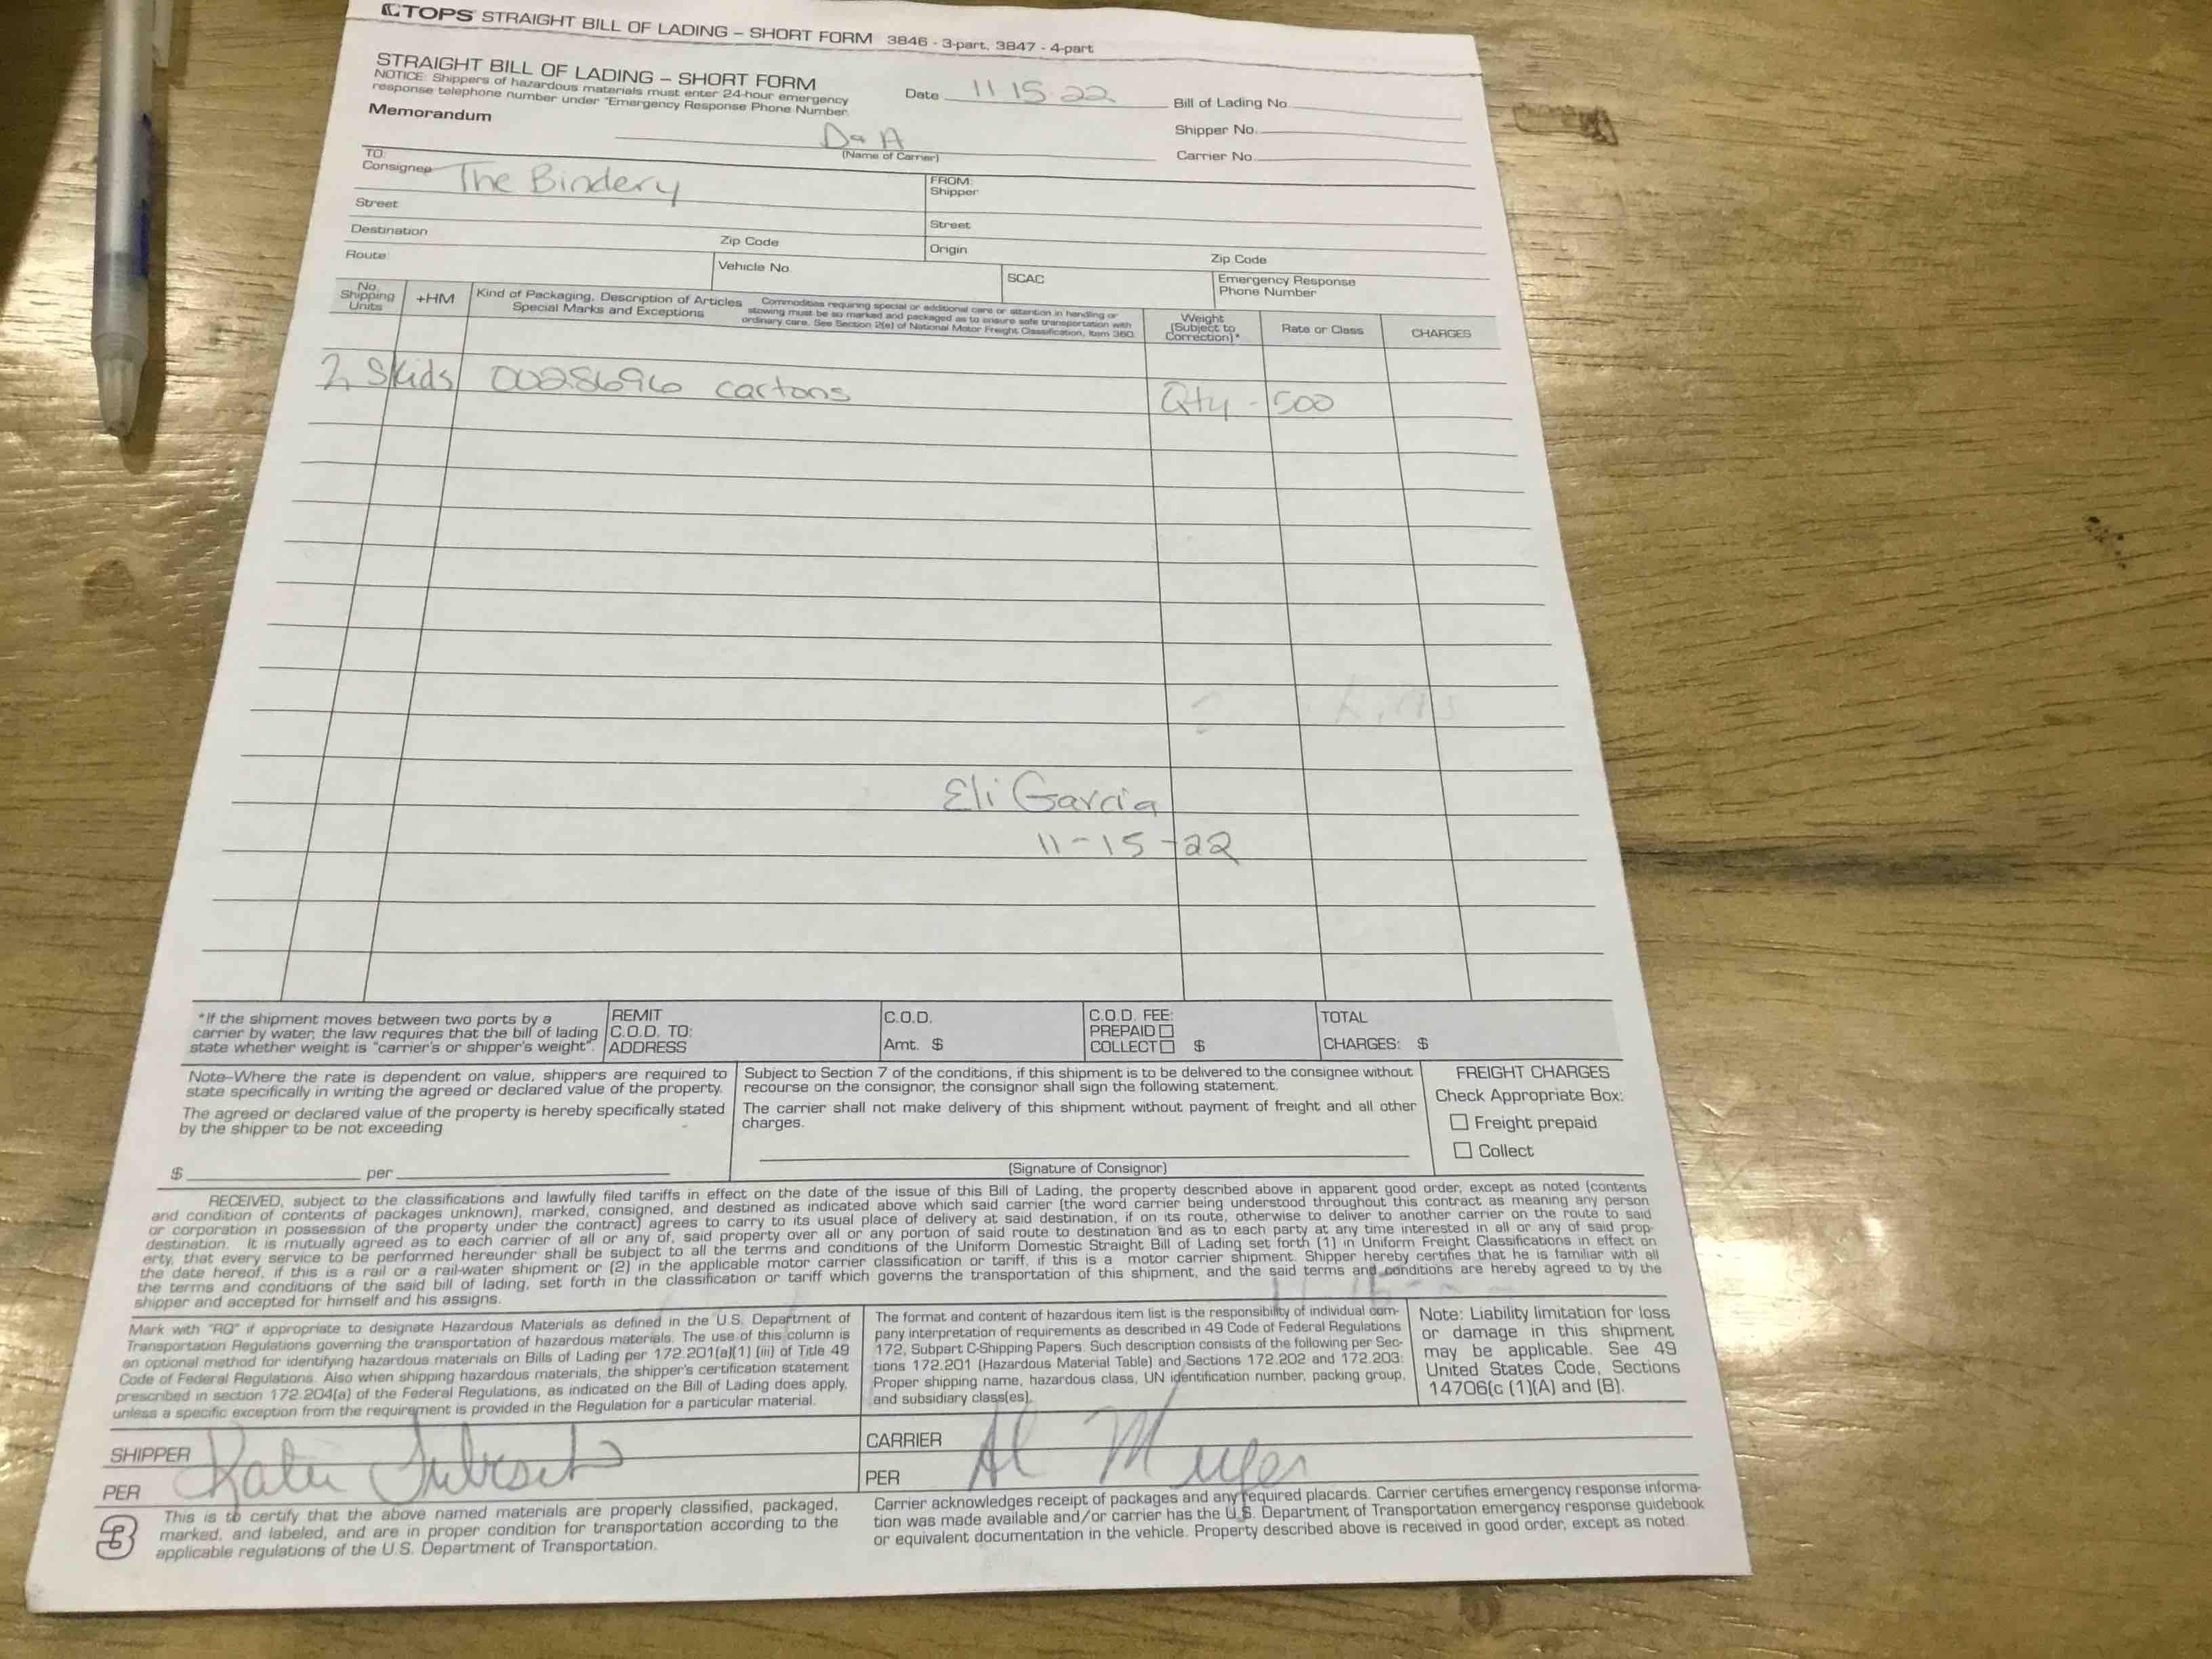 TOPS STRAIGHT BILL OF LADING – SHORT FORM 3846 - 3-part, 3847 - 4-part
STRAIGHT BILL OF LADING – SHORT FORM
NOTICE: Shippers of hazardous materials must enter 24-hour emergency
response telephone number under "Emergency Response Phone Number.
Memorandum
Date 11 15 22
Bill of Lading No.
Shipper No.
Carrier No.
D & A
(Name of Carrier)
TO:
Consignee The Bindery
Street
Destination
Zip Code
FROM:
Shipper
Street
Origin
Zip Code
Route:
Vehicle No.
SCAC
Emergency Response
Phone Number
No.
Shipping
Units
+HM
Kind of Packaging, Description of Articles
Special Marks and Exceptions
Commodities requiring special or additional care or attention in handling or
stowing must be so marked and packaged as to ensure safe transportation with
ordinary care. See Section 2(e) of National Motor Freight Classification, Item 360.
Weight
(Subject to
Correction)*
Rate or Class
CHARGES
2 Skids 0028696 cartons Qty - 500
Eli Garcia
11-15-22
*If the shipment moves between two ports by a
carrier by water, the law requires that the bill of lading
state whether weight is "carrier's or shipper's weight".
REMIT
C.O.D. TO:
ADDRESS
C.O.D.
Amt. $
C.O.D. FEE:
PREPAID
COLLECT $
TOTAL
CHARGES: $
Note–Where the rate is dependent on value, shippers are required to
state specifically in writing the agreed or declared value of the property.
The agreed or declared value of the property is hereby specifically stated
by the shipper to be not exceeding
$ per
Subject to Section 7 of the conditions, if this shipment is to be delivered to the consignee without
recourse on the consignor, the consignor shall sign the following statement.
The carrier shall not make delivery of this shipment without payment of freight and all other
charges.
(Signature of Consignor)
FREIGHT CHARGES
Check Appropriate Box:
Freight prepaid
Collect
RECEIVED, subject to the classifications and lawfully filed tariffs in effect on the date of the issue of this Bill of Lading, the property described above in apparent good order, except as noted (contents
and condition of contents of packages unknown), marked, consigned, and destined as indicated above which said carrier (the word carrier being understood throughout this contract as meaning any person
or corporation in possession of the property under the contract) agrees to carry to its usual place of delivery at said destination, if on its route, otherwise to deliver to another carrier on the route to said
destination. It is mutually agreed as to each carrier of all or any of, said property over all or any portion of said route to destination and as to each party at any time interested in all or any of said prop-
erty, that every service to be performed hereunder shall be subject to all the terms and conditions of the Uniform Domestic Straight Bill of Lading set forth (1) in Uniform Freight Classifications in effect on
the date hereof, if this is a rail or a rail-water shipment or (2) in the applicable motor carrier classification or tariff, if this is a motor carrier shipment. Shipper hereby certifies that he is familiar with all
the terms and conditions of the said bill of lading, set forth in the classification or tariff which governs the transportation of this shipment, and the said terms and conditions are hereby agreed to by the
shipper and accepted for himself and his assigns.
Mark with "RQ" if appropriate to designate Hazardous Materials as defined in the U.S. Department of
Transportation Regulations governing the transportation of hazardous materials. The use of this column is
an optional method for identifying hazardous materials on Bills of Lading per 172.201(a)(1) (iii) of Title 49
Code of Federal Regulations. Also when shipping hazardous materials, the shipper's certification statement
prescribed in section 172.204(a) of the Federal Regulations, as indicated on the Bill of Lading does apply,
unless a specific exception from the requirement is provided in the Regulation for a particular material.
The format and content of hazardous item list is the responsibility of individual com-
pany interpretation of requirements as described in 49 Code of Federal Regulations
172, Subpart C-Shipping Papers. Such description consists of the following per Sec-
tions 172.201 (Hazardous Material Table) and Sections 172.202 and 172.203:
Proper shipping name, hazardous class, UN identification number, packing group,
and subsidiary class(es).
Note: Liability limitation for loss
or damage in this shipment
may be applicable. See 49
United States Code, Sections
14706(c (1)(A) and (B).
SHIPPER
PER Katie
CARRIER
PER Al
This is to certify that the above named materials are properly classified, packaged,
marked, and labeled, and are in proper condition for transportation according to the
applicable regulations of the U.S. Department of Transportation.
3
Carrier acknowledges receipt of packages and any required placards. Carrier certifies emergency response informa-
tion was made available and/or carrier has the U.S. Department of Transportation emergency response guidebook
or equivalent documentation in the vehicle. Property described above is received in good order, except as noted.